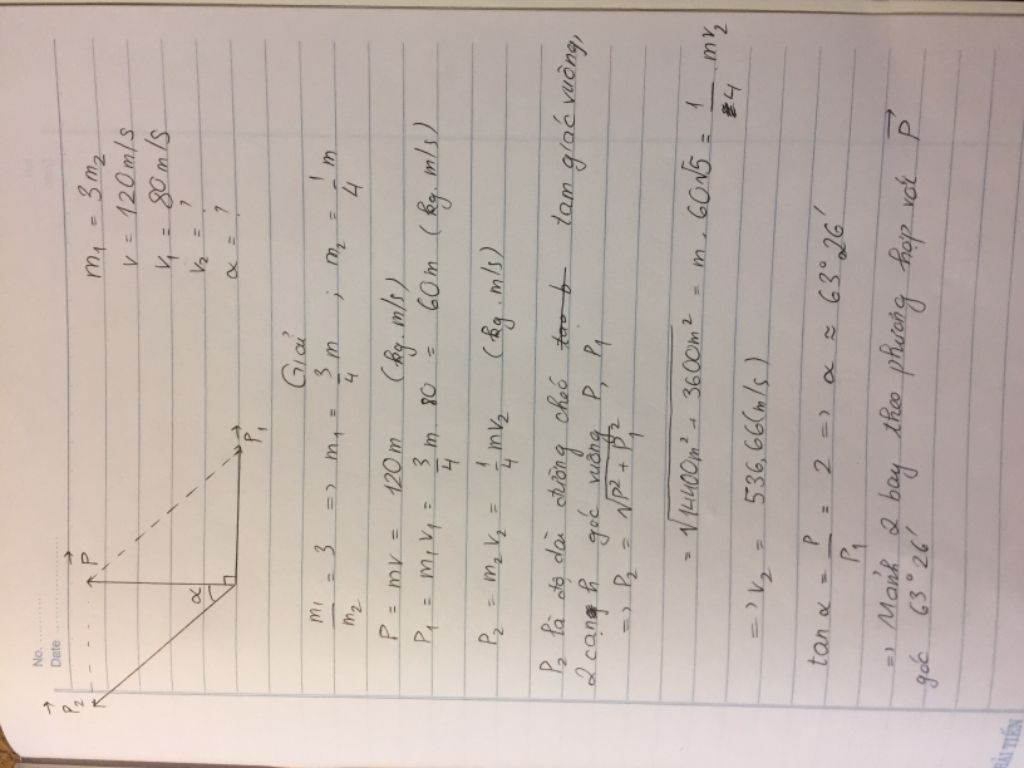 No. ..........
Date ..........
P₂→
P→
α
P₁→
m₁ = 3m₂
v = 120 m/s
v₁ = 80 m/s
v₂ = ?
α = ?
Giải
m₁/m₂ = 3 => m₁ = 3/4 m ; m₂ = 1/4 m
P = mv = 120m (kg.m/s)
P₁ = m₁v₁ = 3/4 m. 80 = 60m (kg.m/s)
P₂ = m₂v₂ = 1/4 mv₂ (kg.m/s)
P₂ là độ dài đường chéo tam giác vuông,
2 cạnh góc vuông P, P₁
=> P₂ = √(P² + P₁²)
= √(14400m² + 3600m²) = m. 60√5 = 1/4 mv₂
=> v₂ = 536,66 (m/s)
tan α = P/P₁ = 2 => α ≈ 63°26'
=> Mảnh 2 bay theo phương hợp với P→
góc 63°26'
HẢI TIẾN